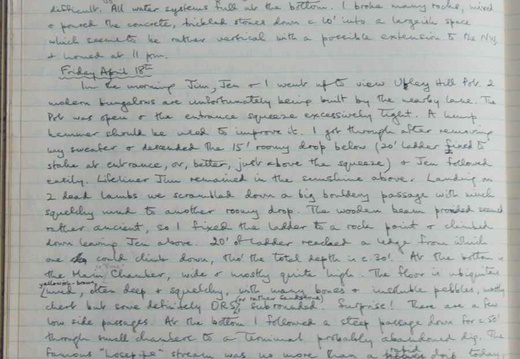 difficult. All water systems full at the bottom. I broke many rocks, mixed
& poured the concrete, trickled stones down a 10' into a largeish space
which seems to be rather vertical with a possible extension to the NW,
& homed at 11 pm.
Friday April 18th
In the morning Jim, Jen & I went up to view Ubley Hill Pot. 2
modern bungalows are unfortunately being built by the nearby lane. The
Pot was open & the entrance squeeze excessively tight. A lump
hammer should be used to improve it. I got through after removing
my sweater & descended the 15' roomy drop below (20' ladder fixed to
stake at entrance, or, better, just above the squeeze) & Jen followed
easily. Lifeliner Jim remained in the sunshine above. Landing on
2 dead lambs we scrambled down a big bouldery passage with much
squelchy mud to another roomy drop. The wooden beam provided seemed
rather ancient, so I fixed the ladder to a rock point & climbed
down leaving Jen above. 20' of ladder reached a ledge from which
one could climb down, tho' the total depth is c. 30'. At the bottom is
the Main Chamber, wide & mostly quite high. The floor is ubiquitous
yellowish-brown
mud, often deep & squelchy, with many bones & insoluble pebbles, mostly
(or rather sandstone)
chert but some definitely ORS, subrounded. Surprise! There are a few
low side passages. At the bottom I followed a steep passage down for c. 50'
through small chambers to a terminal, probably abandoned dig. The
famous "hosepipe" stream was no more than a today.